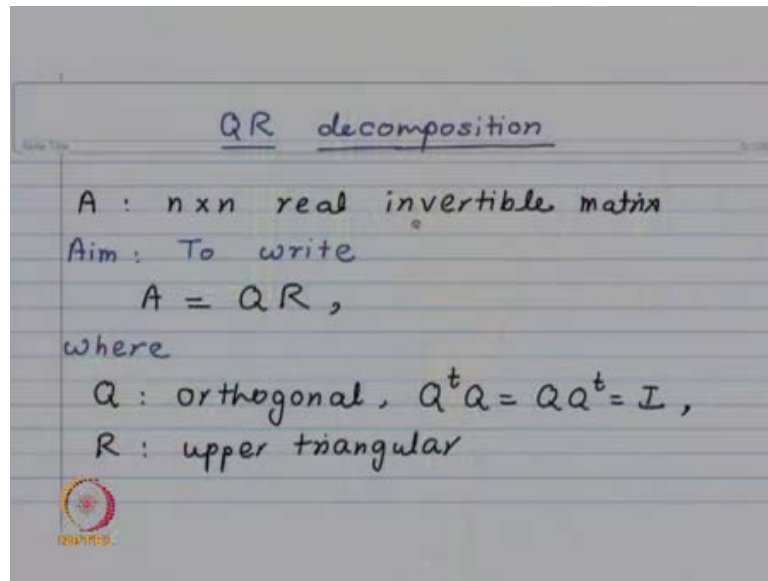 QR decomposition
A : n x n real invertible matrix
Aim : To write
A = QR ,
where
Q : orthogonal, Qᵗ Q = Q Qᵗ = I ,
R : upper triangular
NPTEL